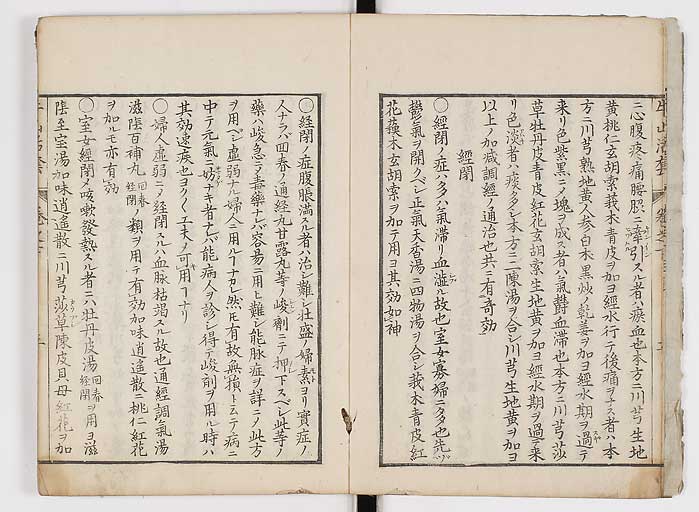 ニ心腹疼痛腰胆ニ牽引スル者ハ瘀血也本方ニ川芎生地
黄桃仁玄胡索莪木青皮ヲ加ヨ經水行テ後痛ヲナス者ハ本
方ニ川芎熟地黄人参白木黒炒ノ乾姜ヲ加ヨ經水期ヲ過テ
来リ色紫黒ニノ塊ヲ成ス者ハ氣欝血滞也本方ニ川芎莎
草牡丹皮青皮紅花玄胡索生地黄ヲ加ヨ經水期ヲ過テ来
リ色淡者ハ痰多シ本方ニ二陳湯ヲ合シ川芎生地黄ヲ加ヨ
以上ノ加減調經ノ通治也共ニ有奇効
經閉
〇經閉ノ症ハ多ハ氣滞リ血澁ル故也室女寡婦ニ多也先ヅ
欝氣ヲ開クベシ正氣天香湯ニ四物湯ヲ合シ莪木青皮紅
花蘓木玄胡索ヲ加テ用ヨ其効如神
〇經閉ノ症腹脹満スル者ハ治シ難シ壮盛ノ婦素ヨリ實症ノ
人ナラバ回春ノ通經丸甘露丸等ノ峻劑ニテ押下スベシ此等ノ
藥ハ峻急ノ毒藥ナレバ容易ニ用ヒ難シ能脉症ヲ詳ニノ此方
ヲ用ベシ虚弱ナル婦人ニ用ルヿナカレ然ㇾ𪜈有故無殞トムテ病ニ
中テ元氣ニ妨ナキ者ナレバ能病人ヲ診シ得テ峻剤ヲ用ル時ハ
其効速疾也ヨクく工夫ノ可用ヿナリ
〇婦人虚弱ニノ經閉スルハ血脉枯竭スル故也通經調氣湯
滋陰百補丸回春經閉ノ類ヲ用テ有効加味逍遥散ニ桃仁紅花
ヲ加ルモ亦有効
〇室女經閉ノ咳嗽發熱スル者ニハ牡丹皮湯回春經閉ヲ用ヨ滋
陰至宝湯加味逍遥散ニ川芎莎草陳皮貝母紅花ヲ加